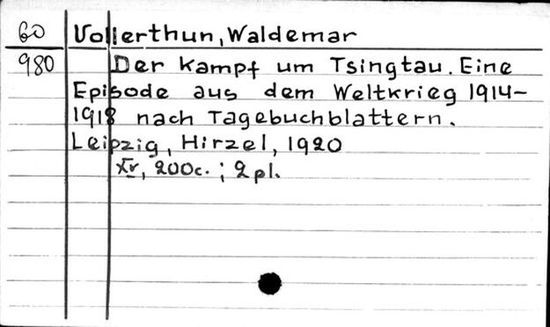 60 Vollerthun, Waldemar
980 Der Kampf um Tsingtau. Eine
Episode aus dem Weltkrieg 1914-
1918 nach Tagebuchblattern.
Leipzig, Hirzel, 1920
XV, 200c.; 2pl.